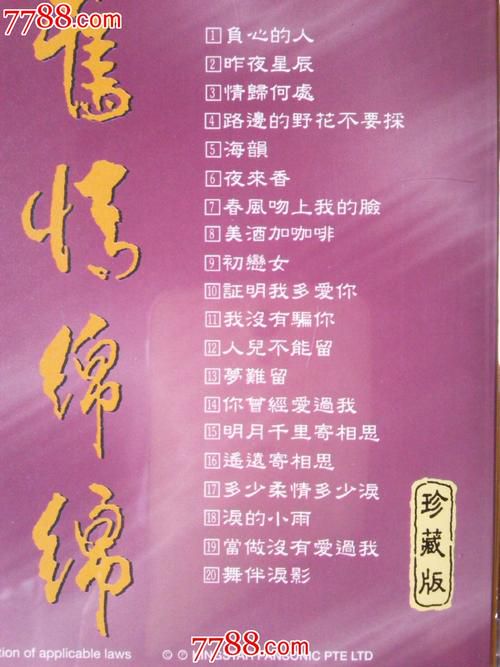 7788.com
舊情綿綿
1 負心的人
2 昨夜星辰
3 情歸何處
4 路邊的野花不要採
5 海韻
6 夜來香
7 春風吻上我的臉
8 美酒加咖啡
9 初戀女
10 証明我多愛你
11 我沒有騙你
12 人兒不能留
13 夢難留
14 你曾經愛過我
15 明月千里寄相思
16 遙遠寄相思
17 多少柔情多少淚
18 淚的小雨
19 當做沒有愛過我
20 舞伴淚影
珍藏版
tion of applicable laws
© ℗ KINGSTAR PANSONIC PTE LTD
7788.com
7788.com